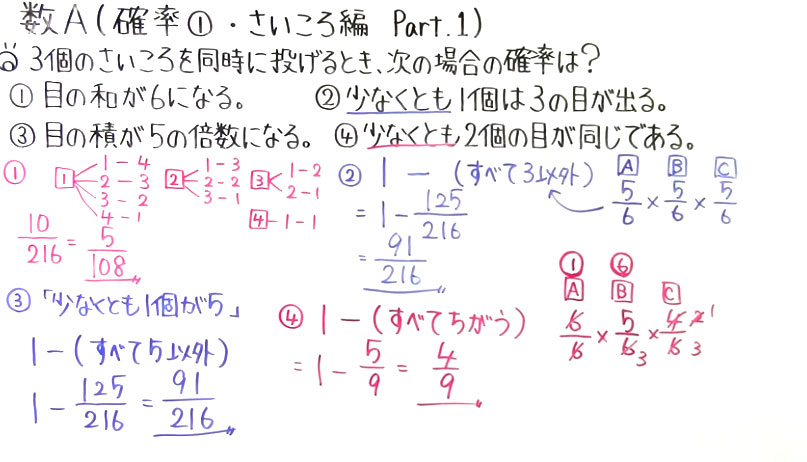 数A(確率①・さいころ編 Part.1)
3個のさいころを同時に投げるとき、次の場合の確率は?
① 目の和が6になる。 ② 少なくとも1個は3の目が出る。
③ 目の積が5の倍数になる。 ④ 少なくとも2個の目が同じである。
①
1 1-4
2-3
3-2
4-1
2 1-3
2-2
3-1
3 1-2
2-1
4 -1-1
10/216 = 5/108
② 1 - (すべて3以外)
A B C
5/6 × 5/6 × 5/6
= 1 - 125/216
= 91/216
③ 「少なくとも1個が5」
1-(すべて5以外)
1 - 125/216 = 91/216
④ 1 -(すべてちがう)
= 1 - 5/9 = 4/9
① ⑥
A B C
6/6 × 5/6 3 × 4/6 2 1 3